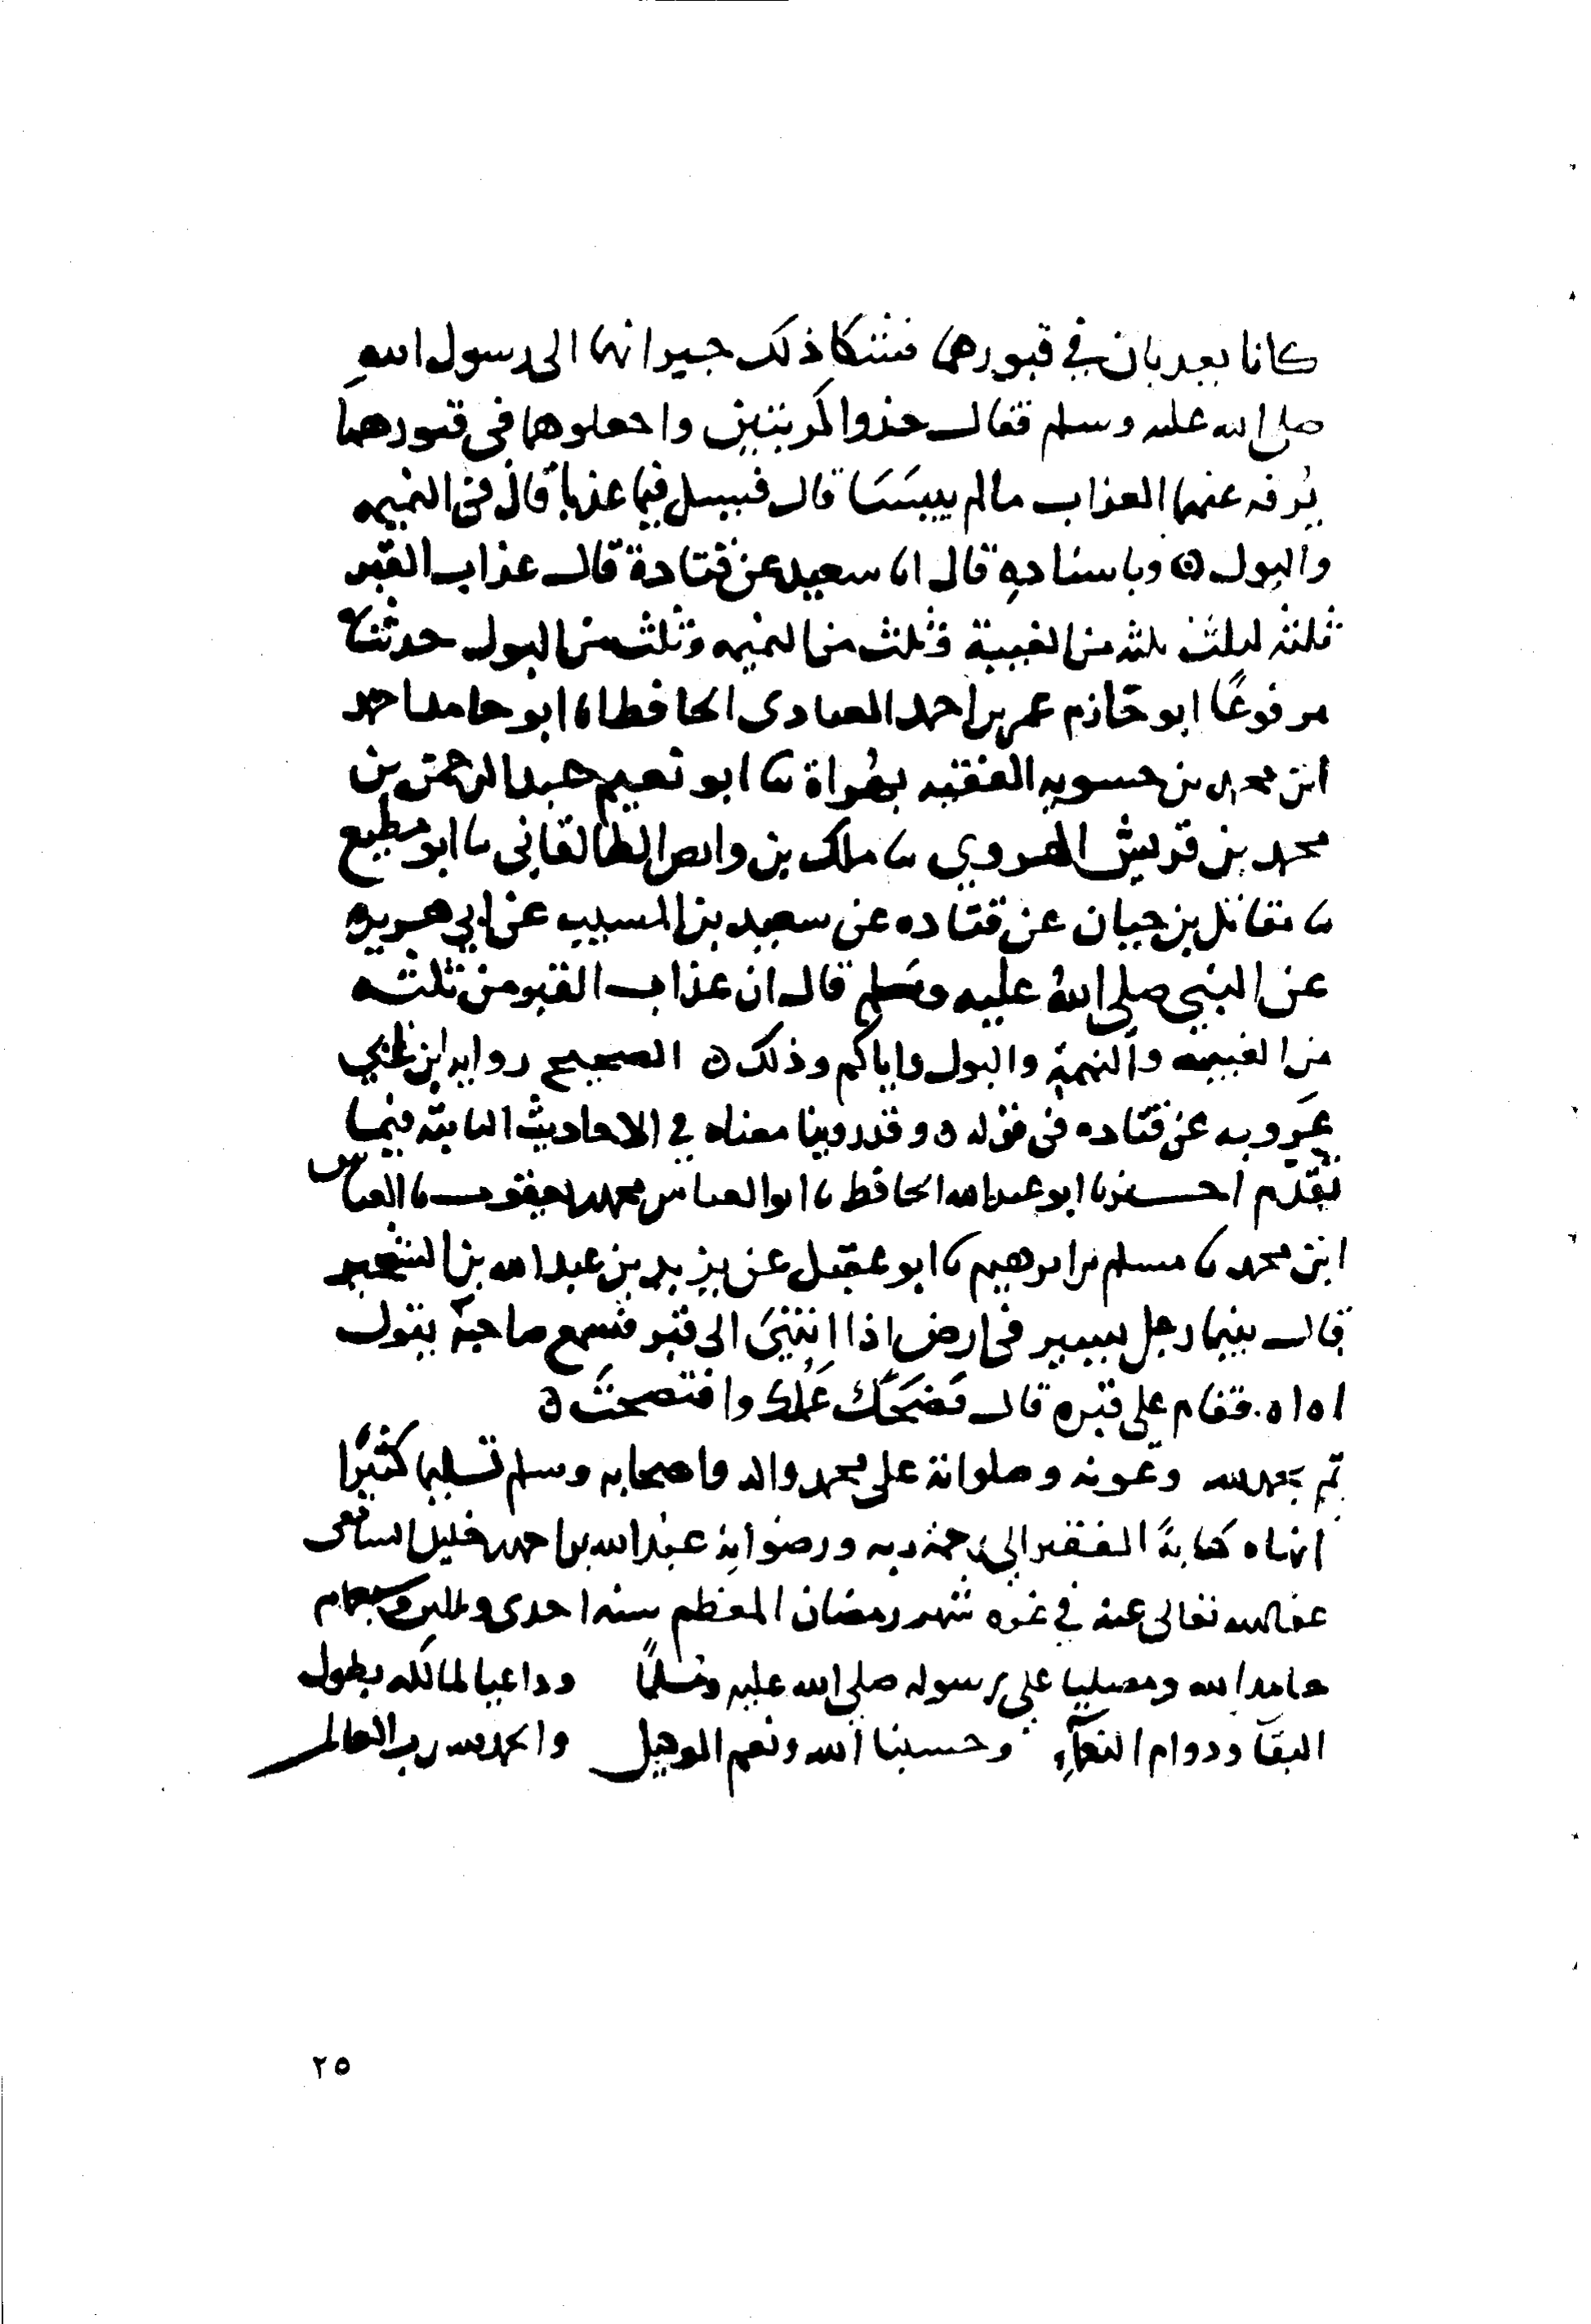 كانا يعذبان في قبورهما فشكا ذلك جيرانهما الى رسول الله
صلى الله عليه وسلم فقال خذوا كربتين واجعلوهما في قبورهما
يُرفه عنهما العذاب ما لم ييبسَا قال فسيل فيما عذبا قال في النميمه
والبول ه وباسناده قال انا سعيد عن قتادة قال عذاب القبر
ثلثه اثلث ثلث من الغيبة وثلث من النميمه وثلث من البول حدثناه
مرفوعًا ابو حازم عمر بن احمد العبادى الحافظ انا ابو حامد احمد
ابن محمد بن حسويه الفقيه بهراة ثنا ابو نعيم عبد الرحمن بن
محمد بن قريش الهروي ثنا ملك بن وابص الطالقاني ثنا ابو مطيع
ثنا مقاتل بن حيان عن قتاده عن سعيد بن المسيب عن ابي هريره
عن النبي صلى الله عليه وسلم قال ان عذاب القبر من ثلثه
من الغيبه والنميمة والبول واياكم وذلك ه الصحيح رواية ابن ابي
عروبه عن قتاده في قوله ه وقد روينا معناه في الاحاديث الثابته فيما
تقدم اخبرنا ابو عبد الله الحافظ ثنا ابو العباس محمد بن يعقوب ثنا العباس
ابن محمد ثنا مسلم بن ابرهيم ثنا ابو عقيل عن يزيد بن عبد الله بن الشخير
قال بينما رجل يسير في ارض اذا انتهى الى قبر فسمع صاحبه يقول
اه اه فقام على قبره قال فضحك عملك وافتضحت ه
تم بحمد الله وعونه وصلواته على محمد واله واصحابه وسلم تسليما كثيرًا
انهاه كتابةً الفقير الى رحمة ربه ورضوانه عبد الله بن احمد خليل الشافعى
عفا الله تعالى عنه في غره شهر رمضان المعظم سنه احدى وثلثين وسبعمايه
حامدا لله ومصليا على رسوله صلى الله عليه وسلمًا وداعيا لمالكه بطول
البقآ ودوام النعمآء وحسبنا الله ونعم الوكيل والحمد لله رب العالمين
٢٥